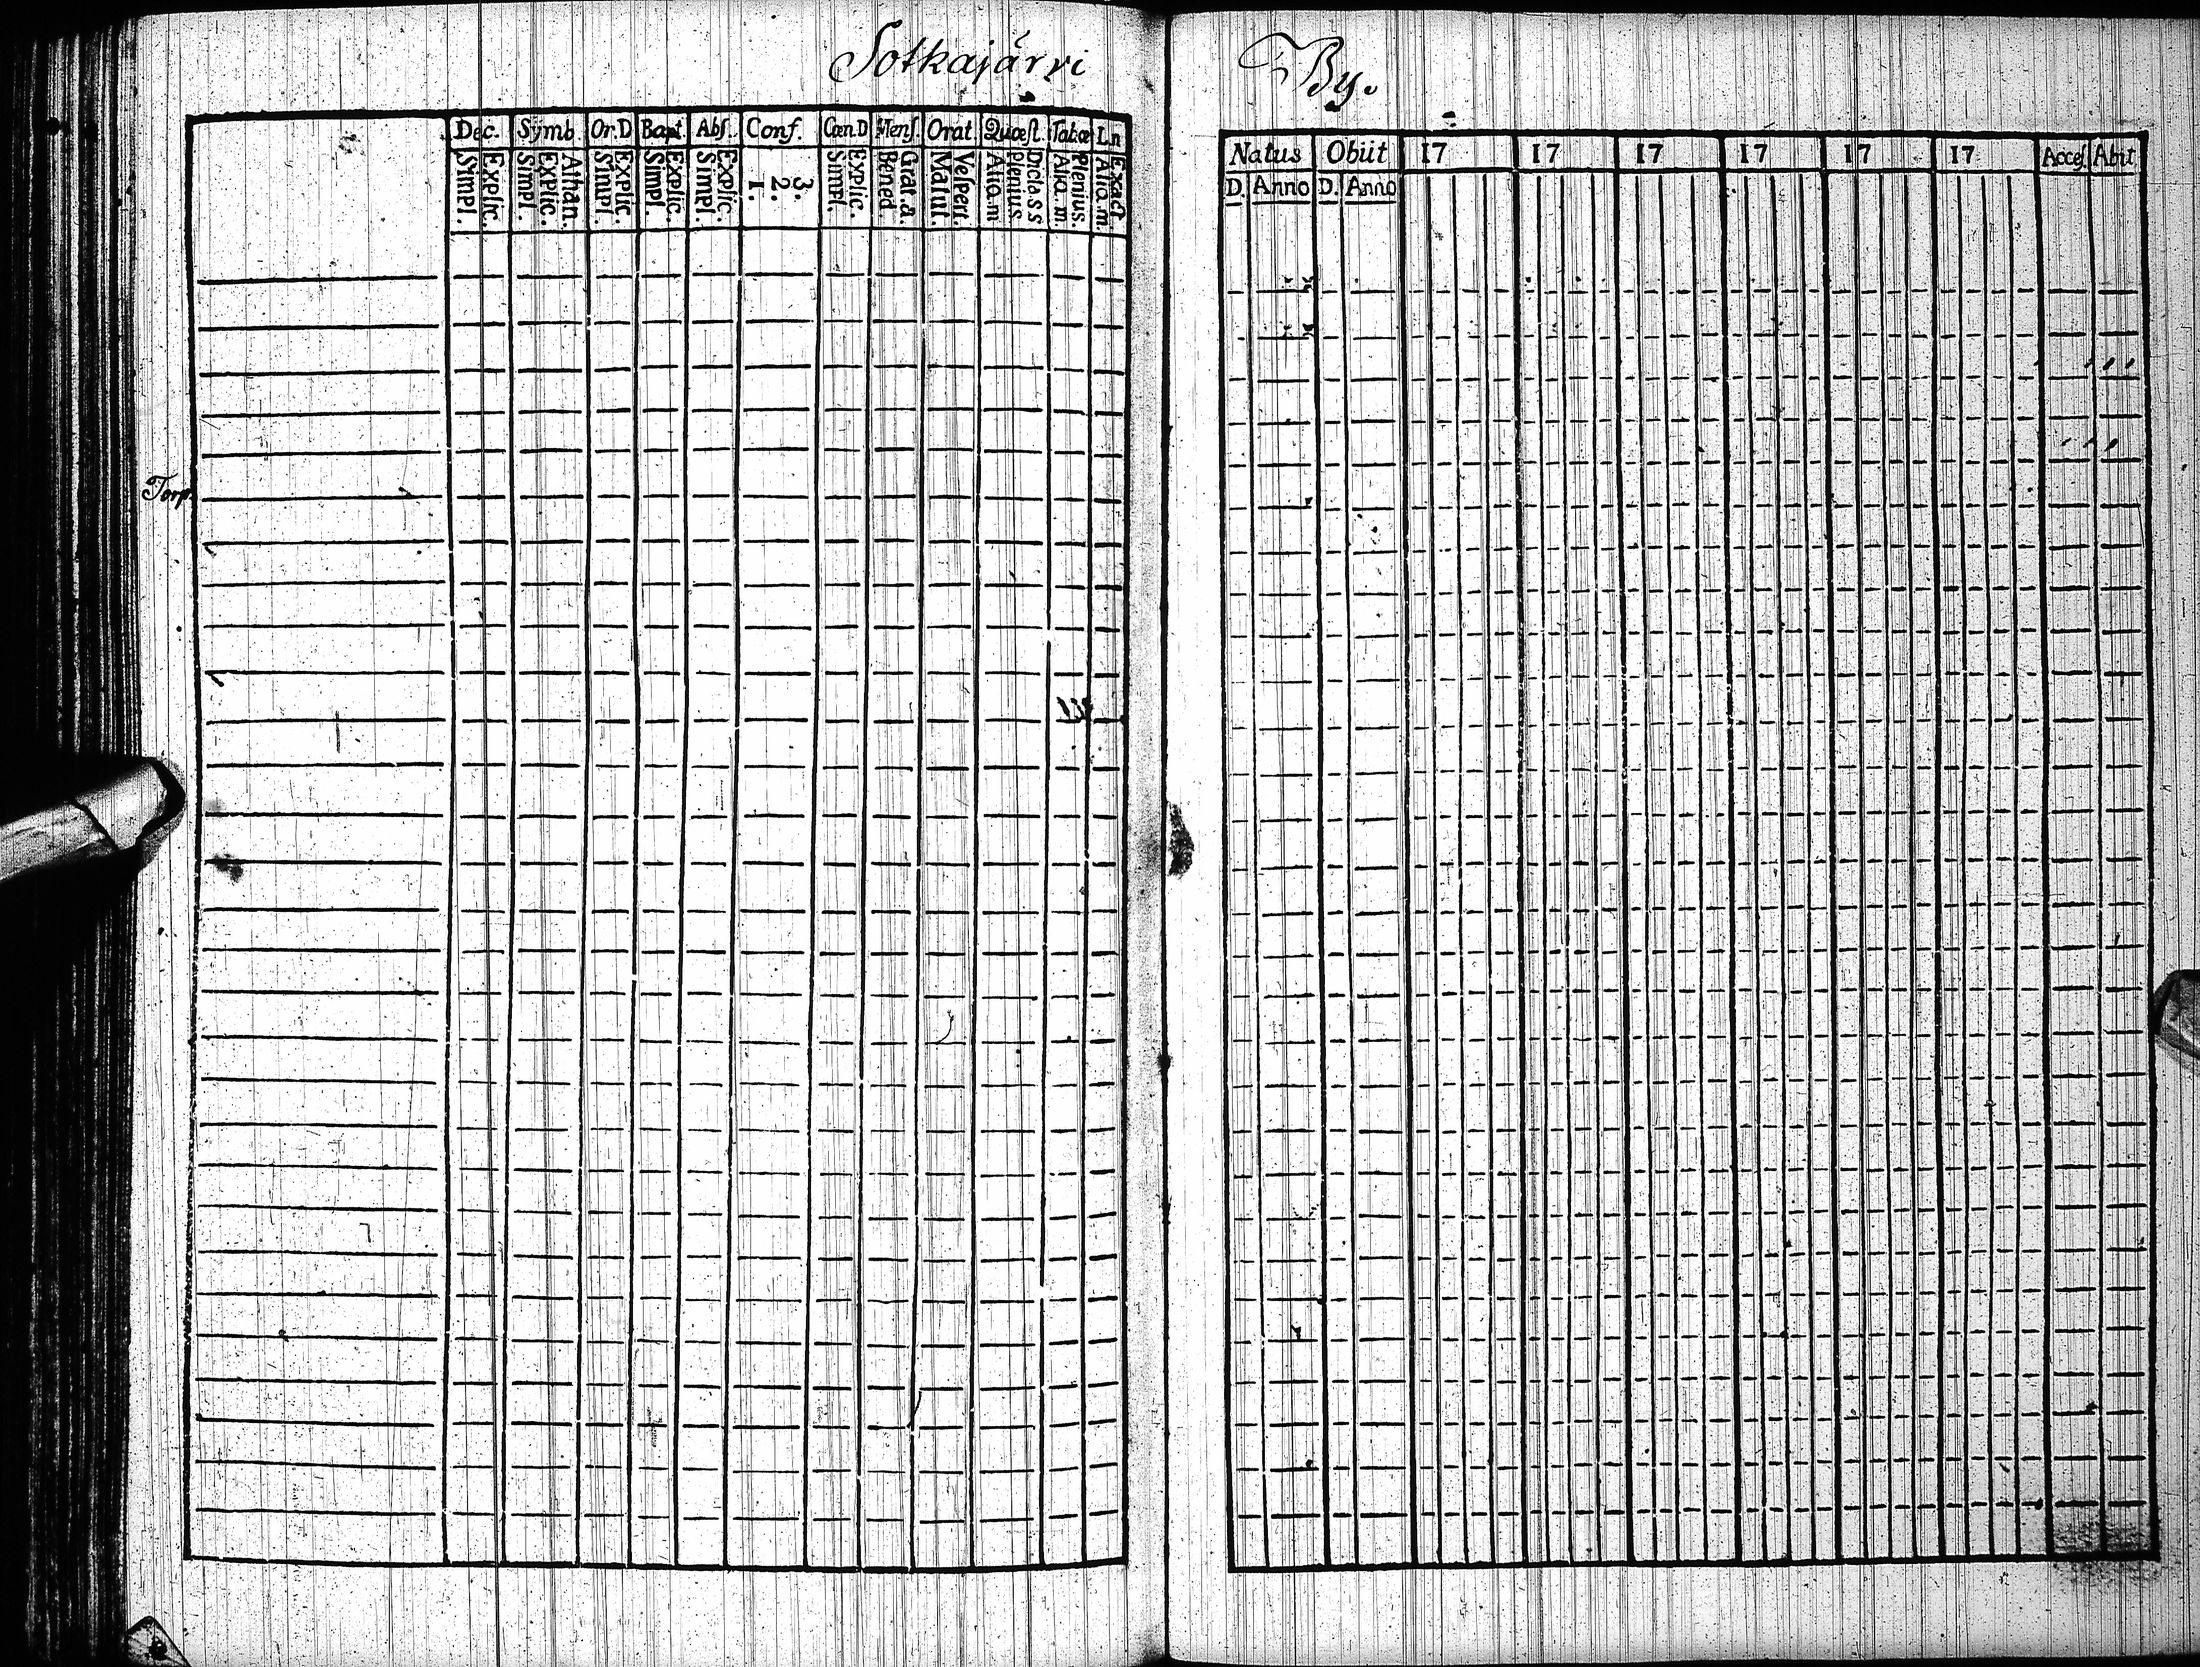 Sotkajärvi By.
Dec. Symb. Or.D Bapt. Abs. Conf. Cœn.D Mens. Orat. Quæst. Tabæ Ln
Explic. Simpl. Athan. Explic. Simpl. Explic. Simpl. Explic. Simpl. Explic. Simpl. 3. 2. 1. Explic. Simpl. Grat.a. Bened. Vesperi. Matut. Dicta.s s Plenius Alio.m Plenius. Alio.m. Exact Alio.m.
Torp.
Natus Obiit 17 17 17 17 17 17 Acces. Abit
D. Anno D. Anno